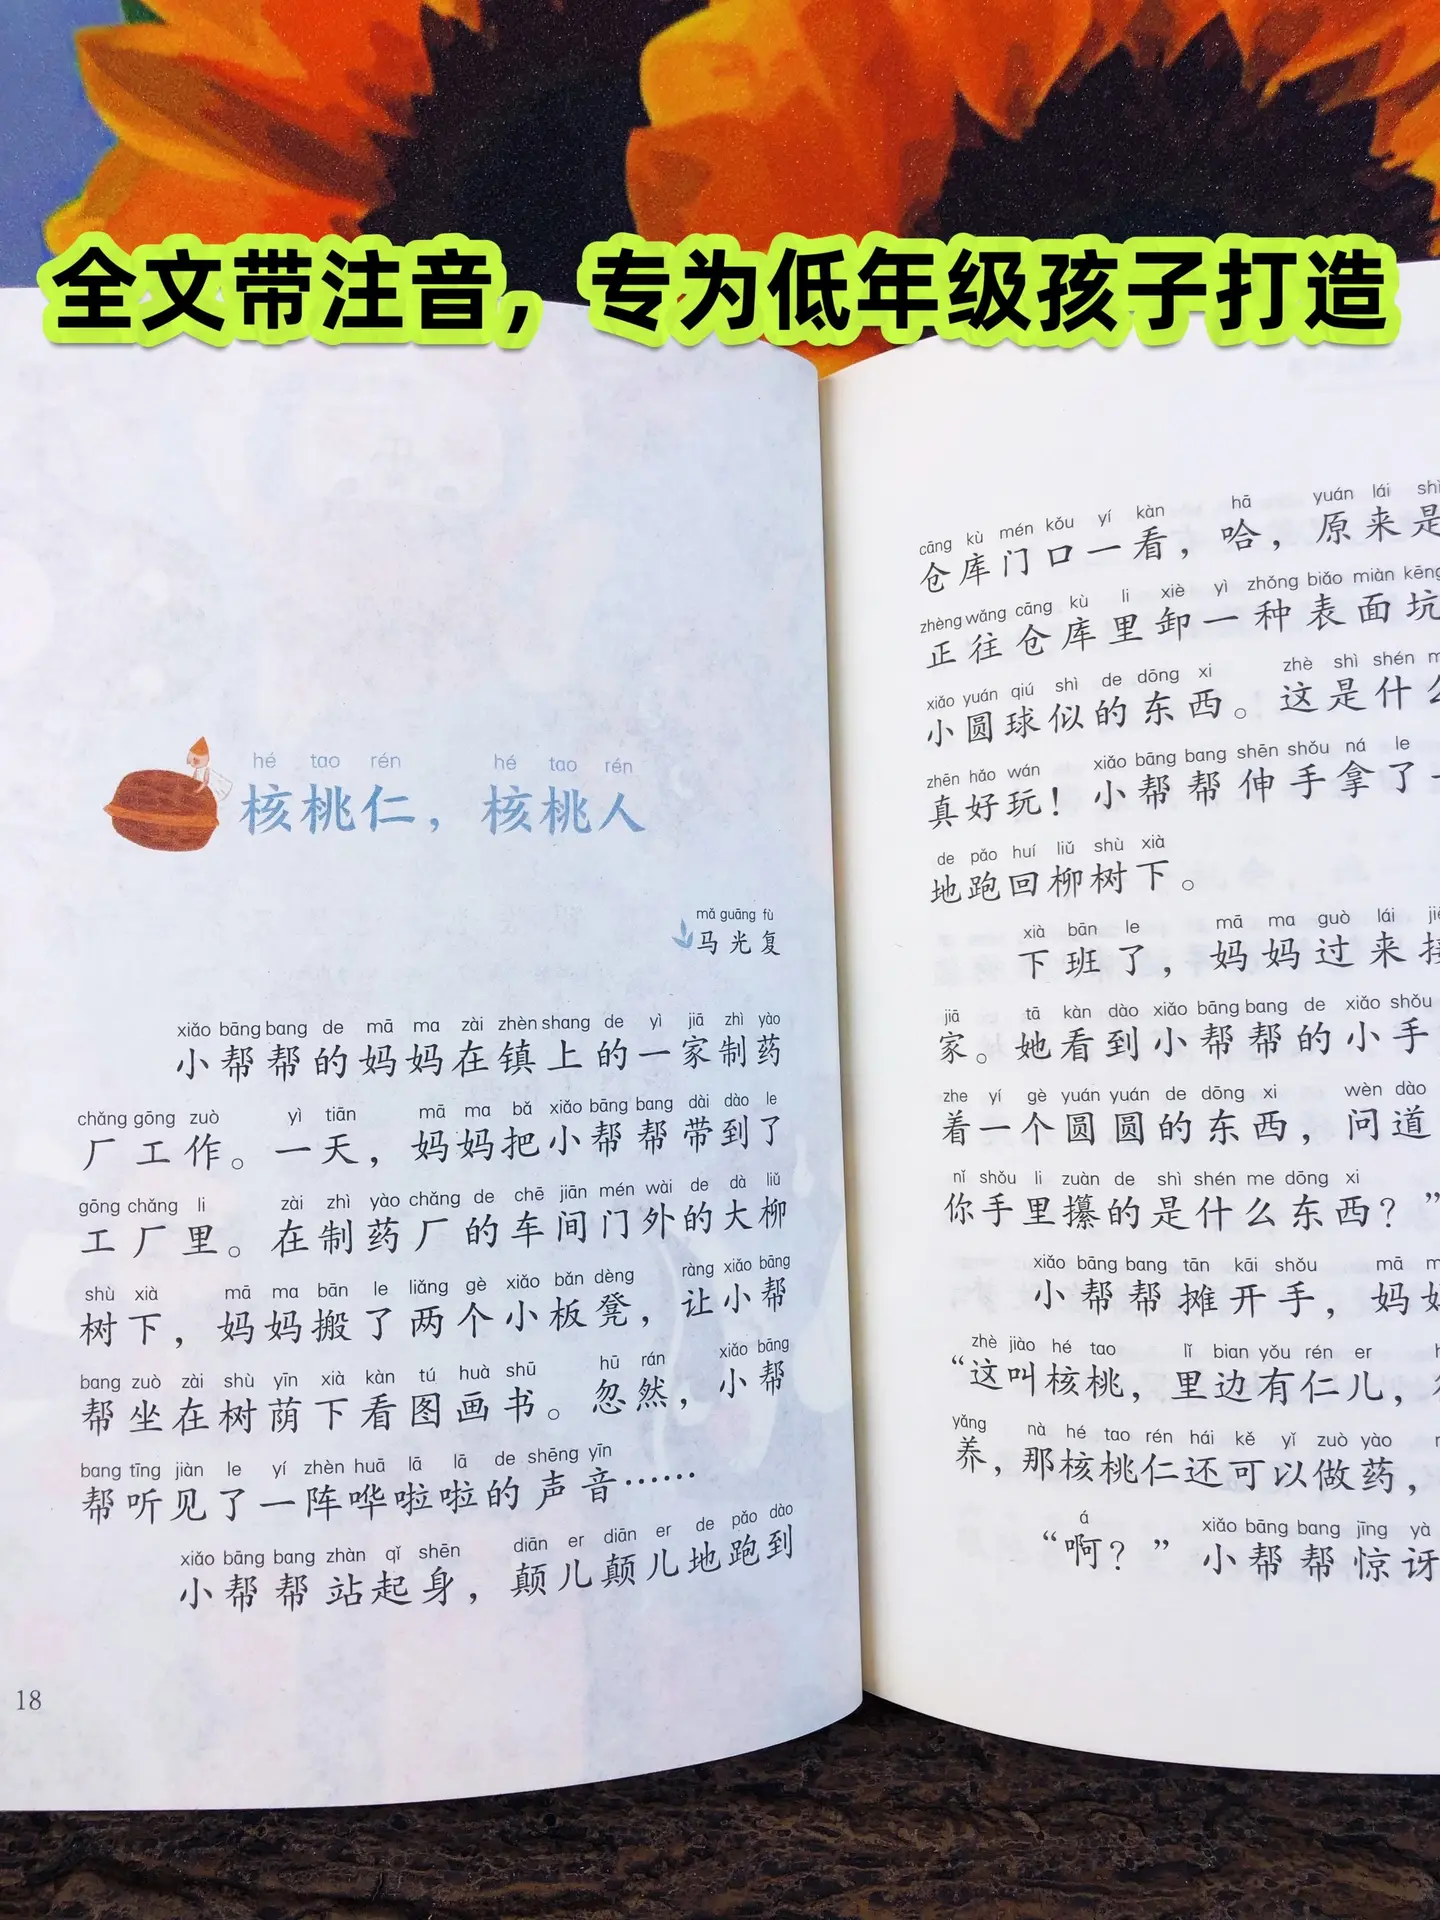 全文带注音，专为低年级孩子打造
hé tao rén hé tao rén
核桃仁，核桃人
mǎ guāng fù
马光复
xiǎo bāng bang de mā ma zài zhèn shang de yì jiā zhì yào
小帮帮的妈妈在镇上的一家制药
chǎng gōng zuò yì tiān mā ma bǎ xiǎo bāng bang dài dào le
厂工作。一天，妈妈把小帮帮带到了
gōng chǎng li zài zhì yào chǎng de chē jiān mén wài de dà liǔ
工厂里。在制药厂的车间门外的大柳
shù xià mā ma bān le liǎng gè xiǎo bǎn dèng ràng xiǎo bāng
树下，妈妈搬了两个小板凳，让小帮
bang zuò zài shù yīn xià kàn tú huà shū hū rán xiǎo bāng
帮坐在树荫下看图画书。忽然，小帮
bang tīng jiàn le yí zhèn huā lā lā de shēng yīn
帮听见了一阵哗啦啦的声音……
xiǎo bāng bang zhàn qǐ shēn diān er diān er de pǎo dào
小帮帮站起身，颠儿颠儿地跑到
18
cāng kù mén kǒu yí kàn hā yuán lái shì
仓库门口一看，哈，原来是
zhèng wǎng cāng kù li xiè yì zhǒng biǎo miàn kēng
正往仓库里卸一种表面坑
xiǎo yuán qiú shì de dōng xi zhè shì shén
小圆球似的东西。这是什么
zhēn hǎo wán xiǎo bāng bang shēn shǒu ná le
真好玩！小帮帮伸手拿了
de pǎo huí liǔ shù xià
地跑回柳树下。
xià bān le mā ma guò lái
下班了，妈妈过来接
jiā tā kàn dào xiǎo bāng bang de xiǎo shǒu
家。她看到小帮帮的小手
zhe yí gè yuán yuán de dōng xi wèn dào
着一个圆圆的东西，问道
nǐ shǒu li zuàn de shì shén me dōng xi
你手里攥的是什么东西？”
xiǎo bāng bang tān kāi shǒu mā
小帮帮摊开手，妈妈
zhè jiào hé tao lǐ bian yǒu rén er
“这叫核桃，里边有仁儿，
yǎng nà hé tao rén hái kě yǐ zuò yào
养，那核桃仁还可以做药，
á xiǎo bāng bang jīng yà
“啊？”小帮帮惊讶